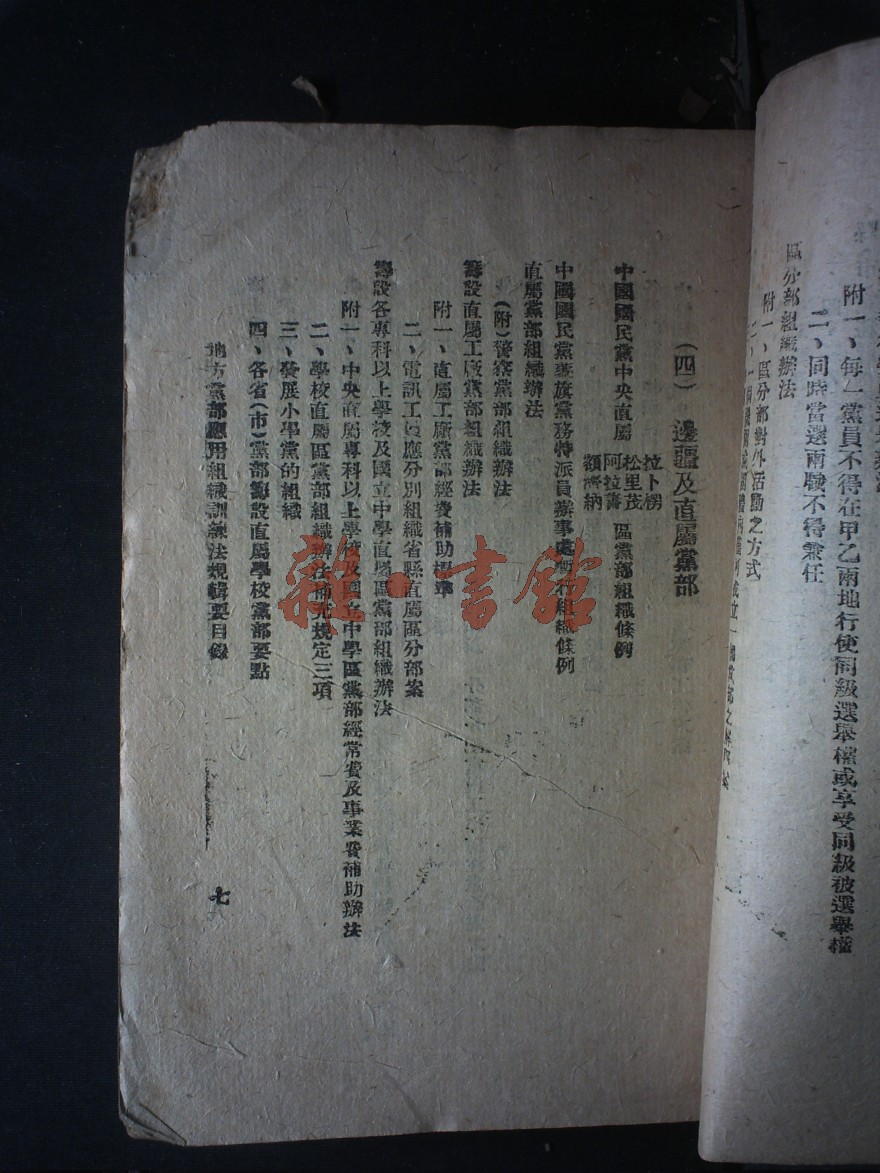 附一、每一黨員不得在甲乙兩地行使同級選舉權或享受同級被選舉權
二、同時當選兩職不得兼任
區分部組織辦法
附一、區分部對外活動之方式
(四) 邊疆及直屬黨部
中國國民黨中央直屬
拉卜楞
松里茂
阿拉善
額濟納
區黨部組織條例
中國國民黨蒙旗黨務特派員辦事處暫行組織條例
直屬黨部組織辦法
(附)警察黨部組織辦法
籌設直屬工廠黨部組織辦法
附一、直屬工廠黨部經費補助標準
二、電訊工員應分別組織省縣直屬區分部案
籌設各專科以上學校及國立中學直屬區黨部組織辦法
附一、中央直屬專科以上學校及國立中學區黨部經常費及事業費補助辦法
二、學校直屬區黨部組織辦法補充規定三項
三、發展小學黨的組織
四、各省(市)黨部籌設直屬學校黨部要點
地方黨部應用組織訓練法規輯要目錄
七
雜·書館